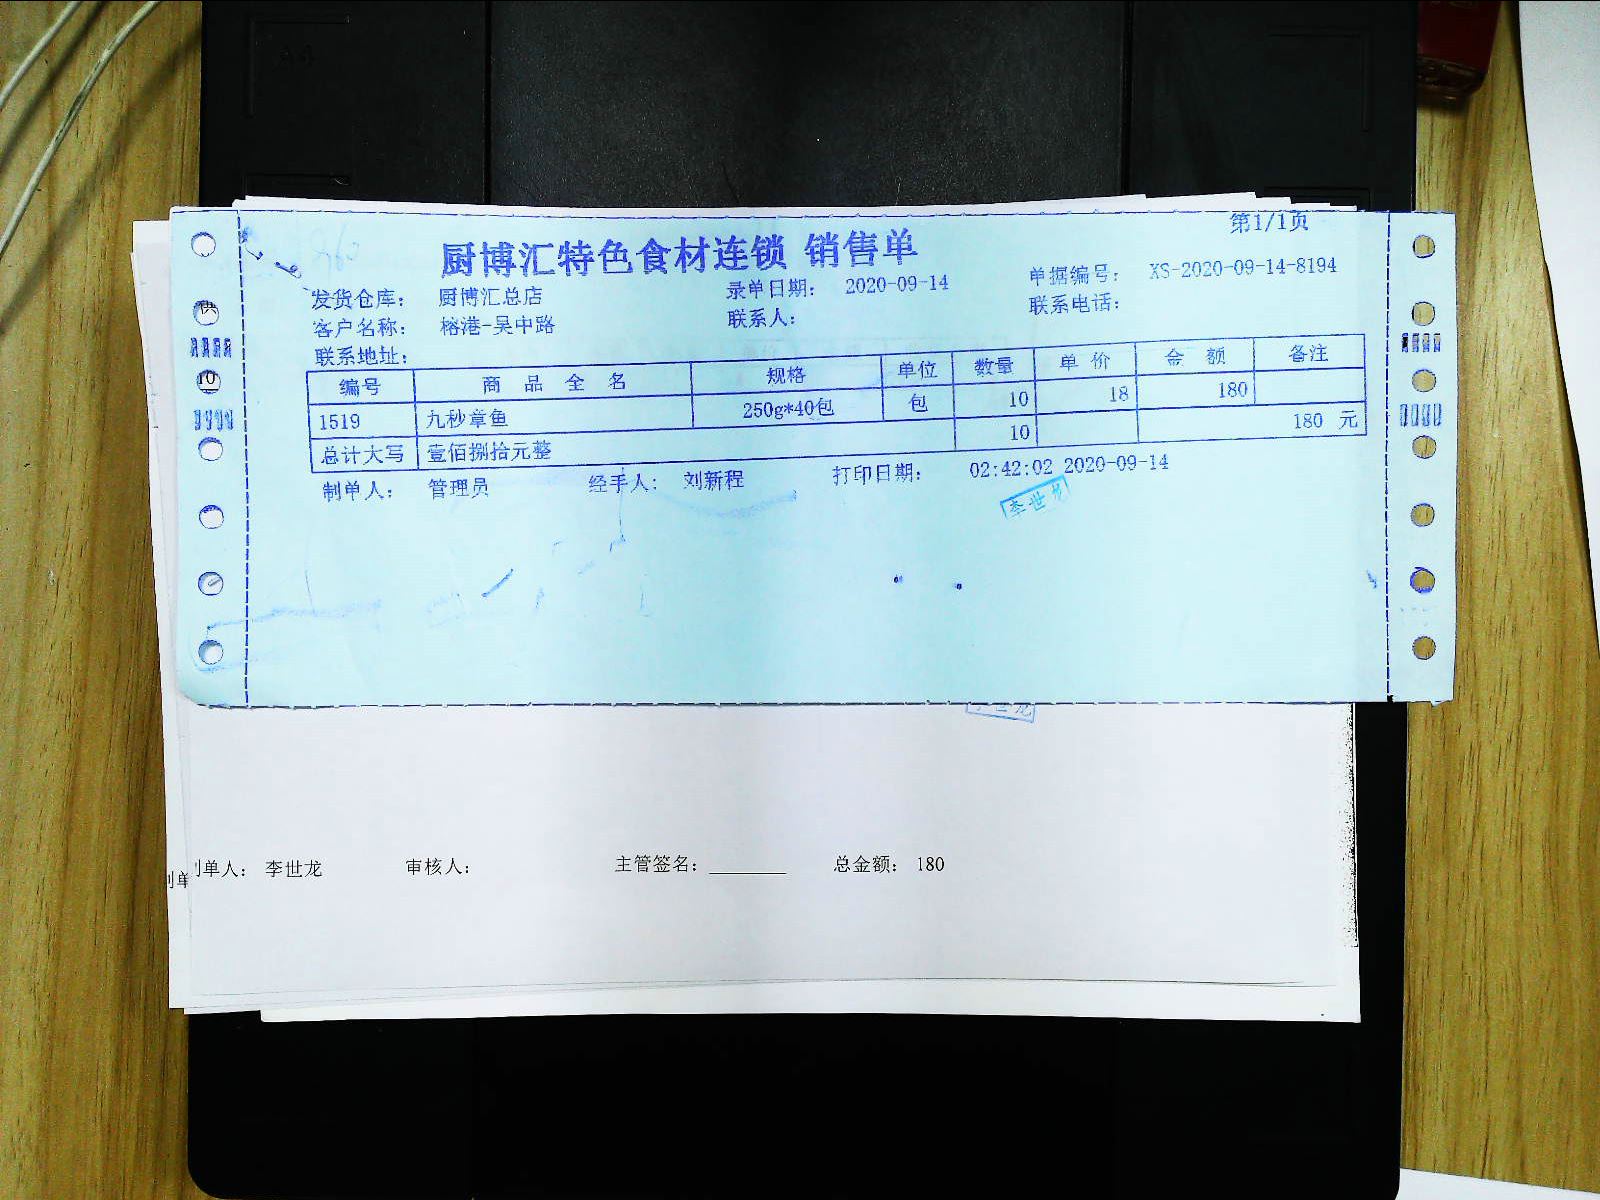 第1/1页
厨博汇特色食材连锁 销售单
发货仓库： 厨博汇总店 录单日期： 2020-09-14 单据编号： XS-2020-09-14-8194
客户名称： 榕港-吴中路 联系人： 联系电话：
联系地址：
编号 商 品 全 名 规格 单位 数量 单 价 金 额 备注
1519 九秒章鱼 250g*40包 包 10 18 180
总计大写 壹佰捌拾元整 10 180 元
制单人： 管理员 经手人： 刘新程 打印日期： 02:42:02 2020-09-14
李世龙
制单人： 李世龙 审核人： 主管签名：________ 总金额： 180